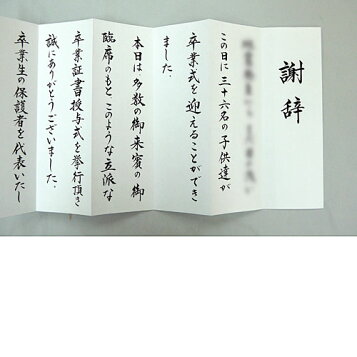 謝辞
この日に三十六名の子供達が
卒業式を迎えることができ
ました。
本日は多数の御来賓の御
臨席のもとこのような立派な
卒業証書授与式を挙行頂き
誠にありがとうございました。
卒業生の保護者を代表いたし